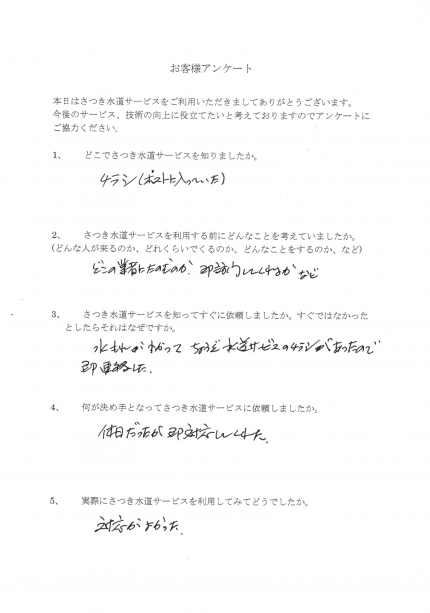 お客様アンケート
本日はさつき水道サービスをご利用いただきましてありがとうございます。
今後のサービス、技術の向上に役立てたいと考えておりますのでアンケートに
ご協力ください。
1、　どこでさつき水道サービスを知りましたか。
チラシ（ポストに入っていた）
2、　さつき水道サービスを利用する前にどんなことを考えていましたか。
(どんな人が来るのか、どれくらいでくるのか、どんなことをするのか、など)
どこの業者にたのむのか、即対応してくれるか など
3、　さつき水道サービスを知ってすぐに依頼しましたか。すぐではなかった
としたらそれはなぜですか。
水もれがわかって ちょうど 水道サービスのチラシがあったので
即連絡した.
4、　何が決め手となってさつき水道サービスに依頼しましたか。
休日だったが 即対応してくれた.
5、　実際にさつき水道サービスを利用してみてどうでしたか。
対応がよかった.